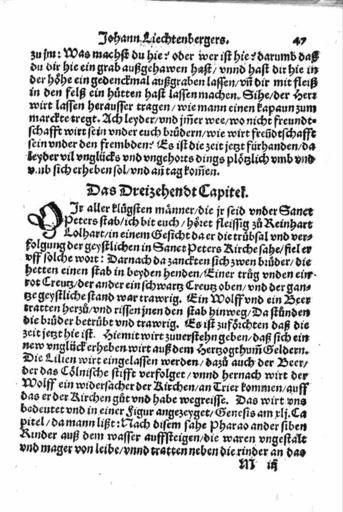 Johann Liechtenbergers. 47
zu jm: Was machst du hie? oder wer ist hie? darumb daß
du dir hie ein grab außgehawen hast/ vnnd hast dir hie in
der höhe ein gedenckmal außgraben lassen/ vñ dir mit fleiß
in den felß ein hütten hast lassen machen. Sihe/der Herr
wirt lassen herausser tragen/ wie mann einen kapaun zum
marckte tregt. Ach leyder/ vnd jmer wee/ wo nicht freundt-
schafft wirt sein vnder euch brüdern/ wie wirt freündtschafft
sein vnder den frembden? Es ist die zeit jetzt fürhanden/ da
leyder vil vnglücks vnd vngehorts dings plötzlich vmb vnd
vmb sich erheben sol/ vnd an tag kom̃en.
Das Dreizehendt Capitel.
O Ir aller klügsten männer/ die jr seid vnder Sanct
Peters stab/ ich bit euch/ höret fleissig zů Reinhart
Lolhart/ in einem Gesicht da er die trübsal vnd ver-
folgung der geystlichen in Sanct Peters Kirche sahe/ fiel er
vff solche wort: Darnach da zanckten sich zwen brüder/ die
hetten einen stab in beyden henden/ Einer trůg vnden ein
rot Creutz/ der ander ein schwartz Creutz oben/ vnd der gan-
tze geystliche stand war trawrig. Ein Wolff vnd ein Beer
tratten herzů/ vnd rissen jnen den stab hinweg/ Da stůnden
die brüder betrübt vnd trawrig. Es ist zu förchten daß die
zeit jetzt hie ist. Hiemit wirt zuuerstehn geben/ daß sich ein
new vnglück erheben wirt auß dem Hertzogthum̃ Geldern.
Die Lilien wirt eingelassen werden/ dazů auch der Beer/
der das Cölnische stifft verfolget/ vnnd hernach wirt der
Wolff ein widersacher der Kirchen/ an Trier kommen/ auff
das er der Kirchen gůt vnd habe wegreisse. Das wirt vns
bedeutet vnd in einer Figur angezeyget/ Genesis am xlj. Ca
pitel/ da mann lißt: Nach disem sahe Pharao ander siben
Rinder auß dem wasser auffsteigen/ die waren vngestalt
vnd mager von leibe/ vnnd tratten neben die rinder an das
M iij